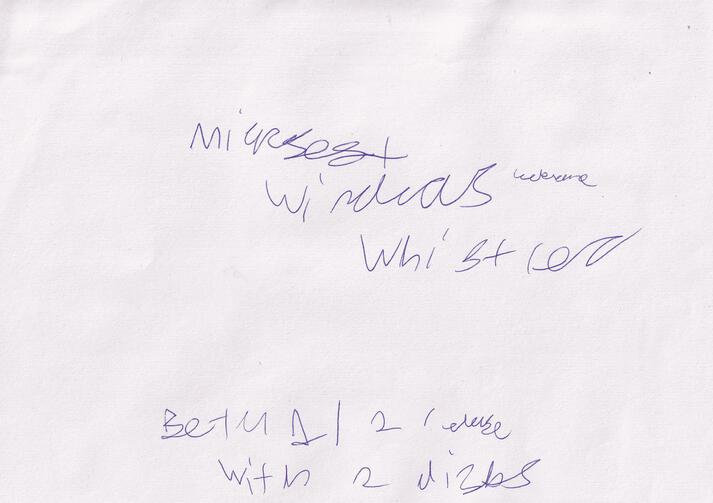 Microsoft
Windows
Whistler
Beta 1 / 2 release
With 2 disks